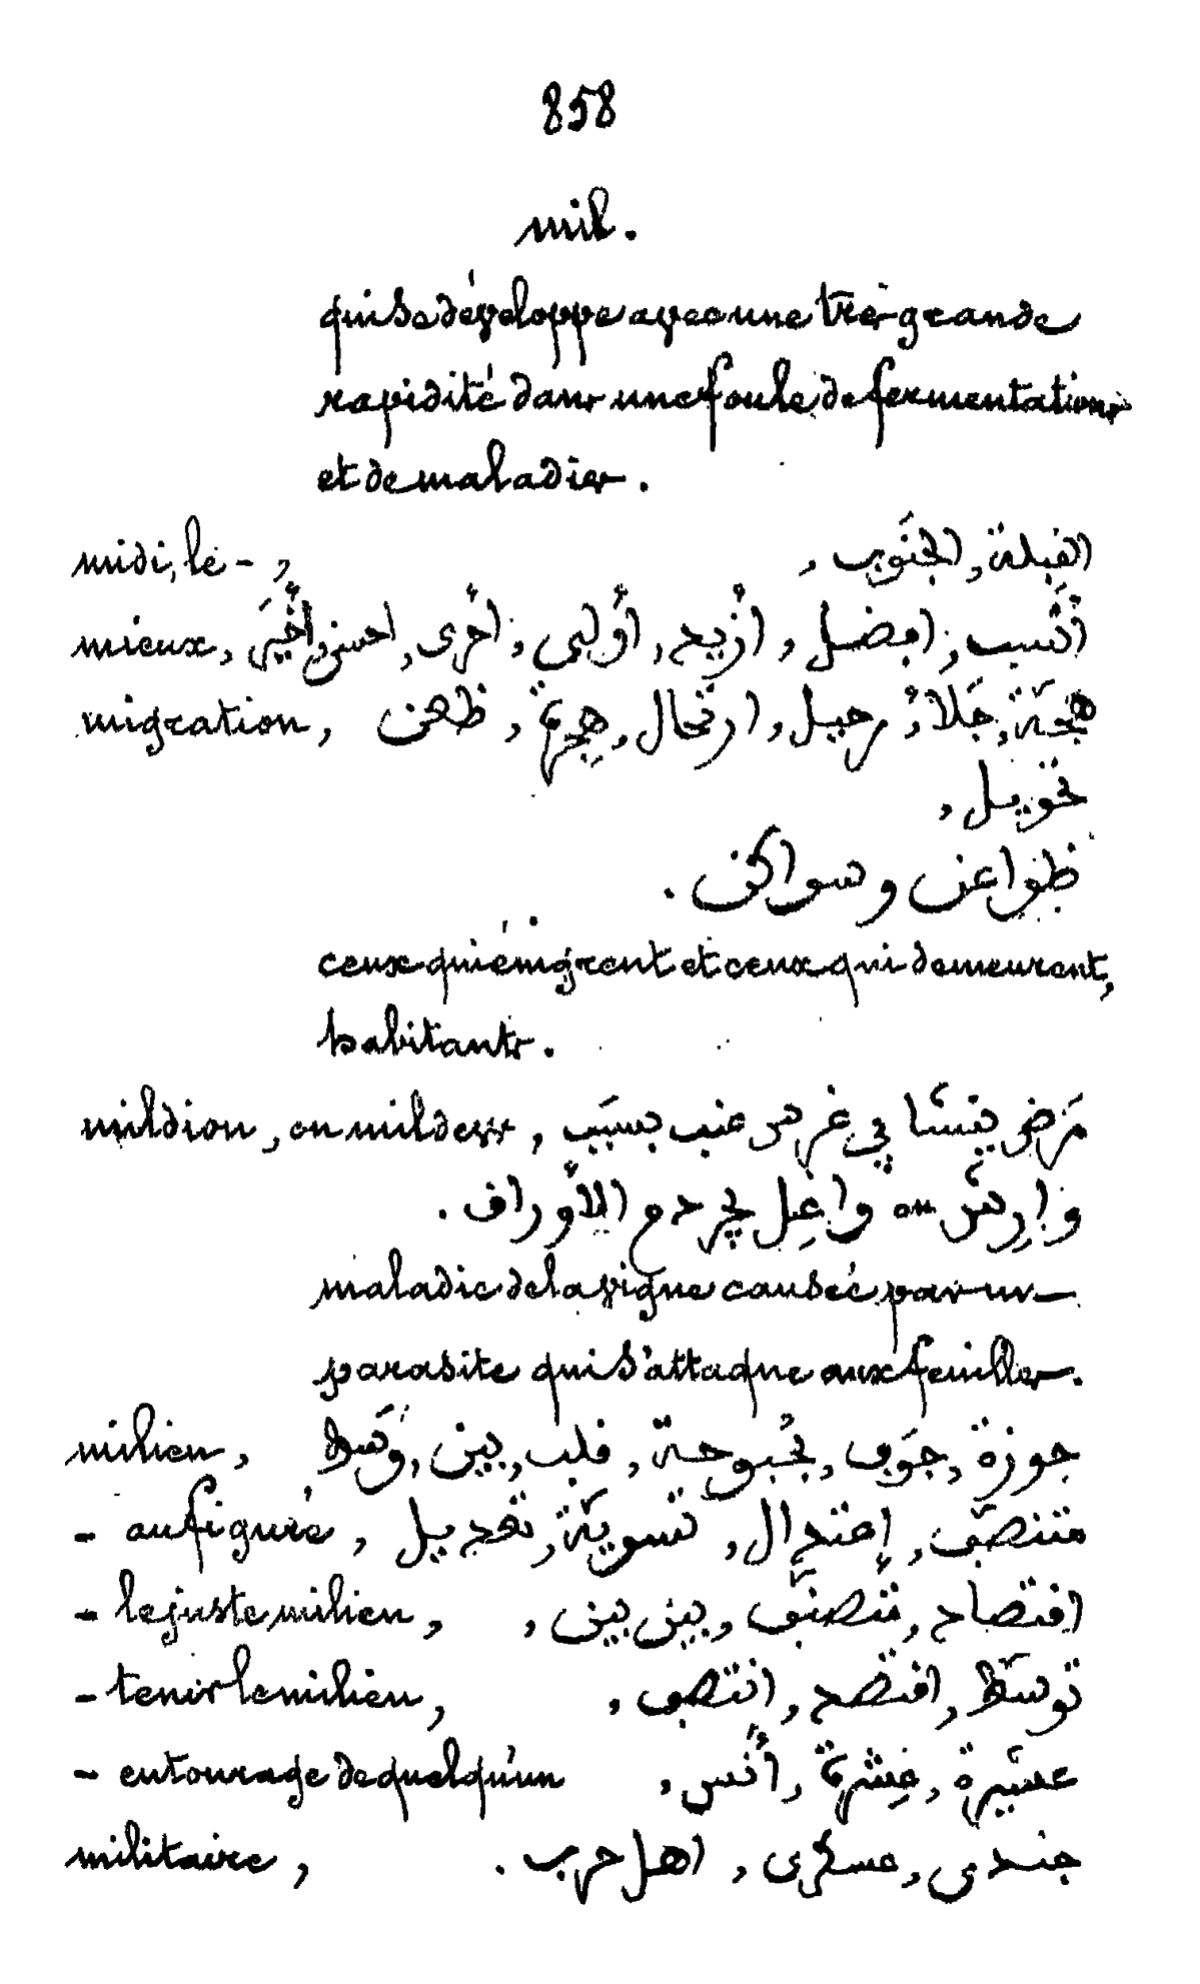 858
mil.
qui se développe avec une très grande
rapidité dans une foule de fermentations
et de maladies.
midi, le -, القبلة, الجنوب,
mieux, انسب, افضل, ازيد, أولى, أحرى, احسن, أخير
migration, هجّة, جلاء, رحيل, ارتحال, هِجرة, ظعن
تحويل,
ظواعن وسواكن.
ceux qui émigrent et ceux qui demeurent,
habitants.
mildiou, ou mildew, مَرض ينشا في غرس عنب بسبَب
وارِش ou واغِل يجرد الأوراق.
maladie de la vigne causée par un
parasite qui s'attaque aux feuilles.
milieu, جوزة, جوَف, بُحبوحة, قلب, بين, وسَط
- au figuré, متنصّف, إعتدال, تسويّة, تعديل
- le juste milieu, اقتصاد, تنصّف, بين بين,
- tenir le milieu, توسّط, اقتصد, انتصف,
- entourage de quelqu'un عشيرة, عِشرة, أنس,
militaire, جندي, عسكرى, اهل حرب.